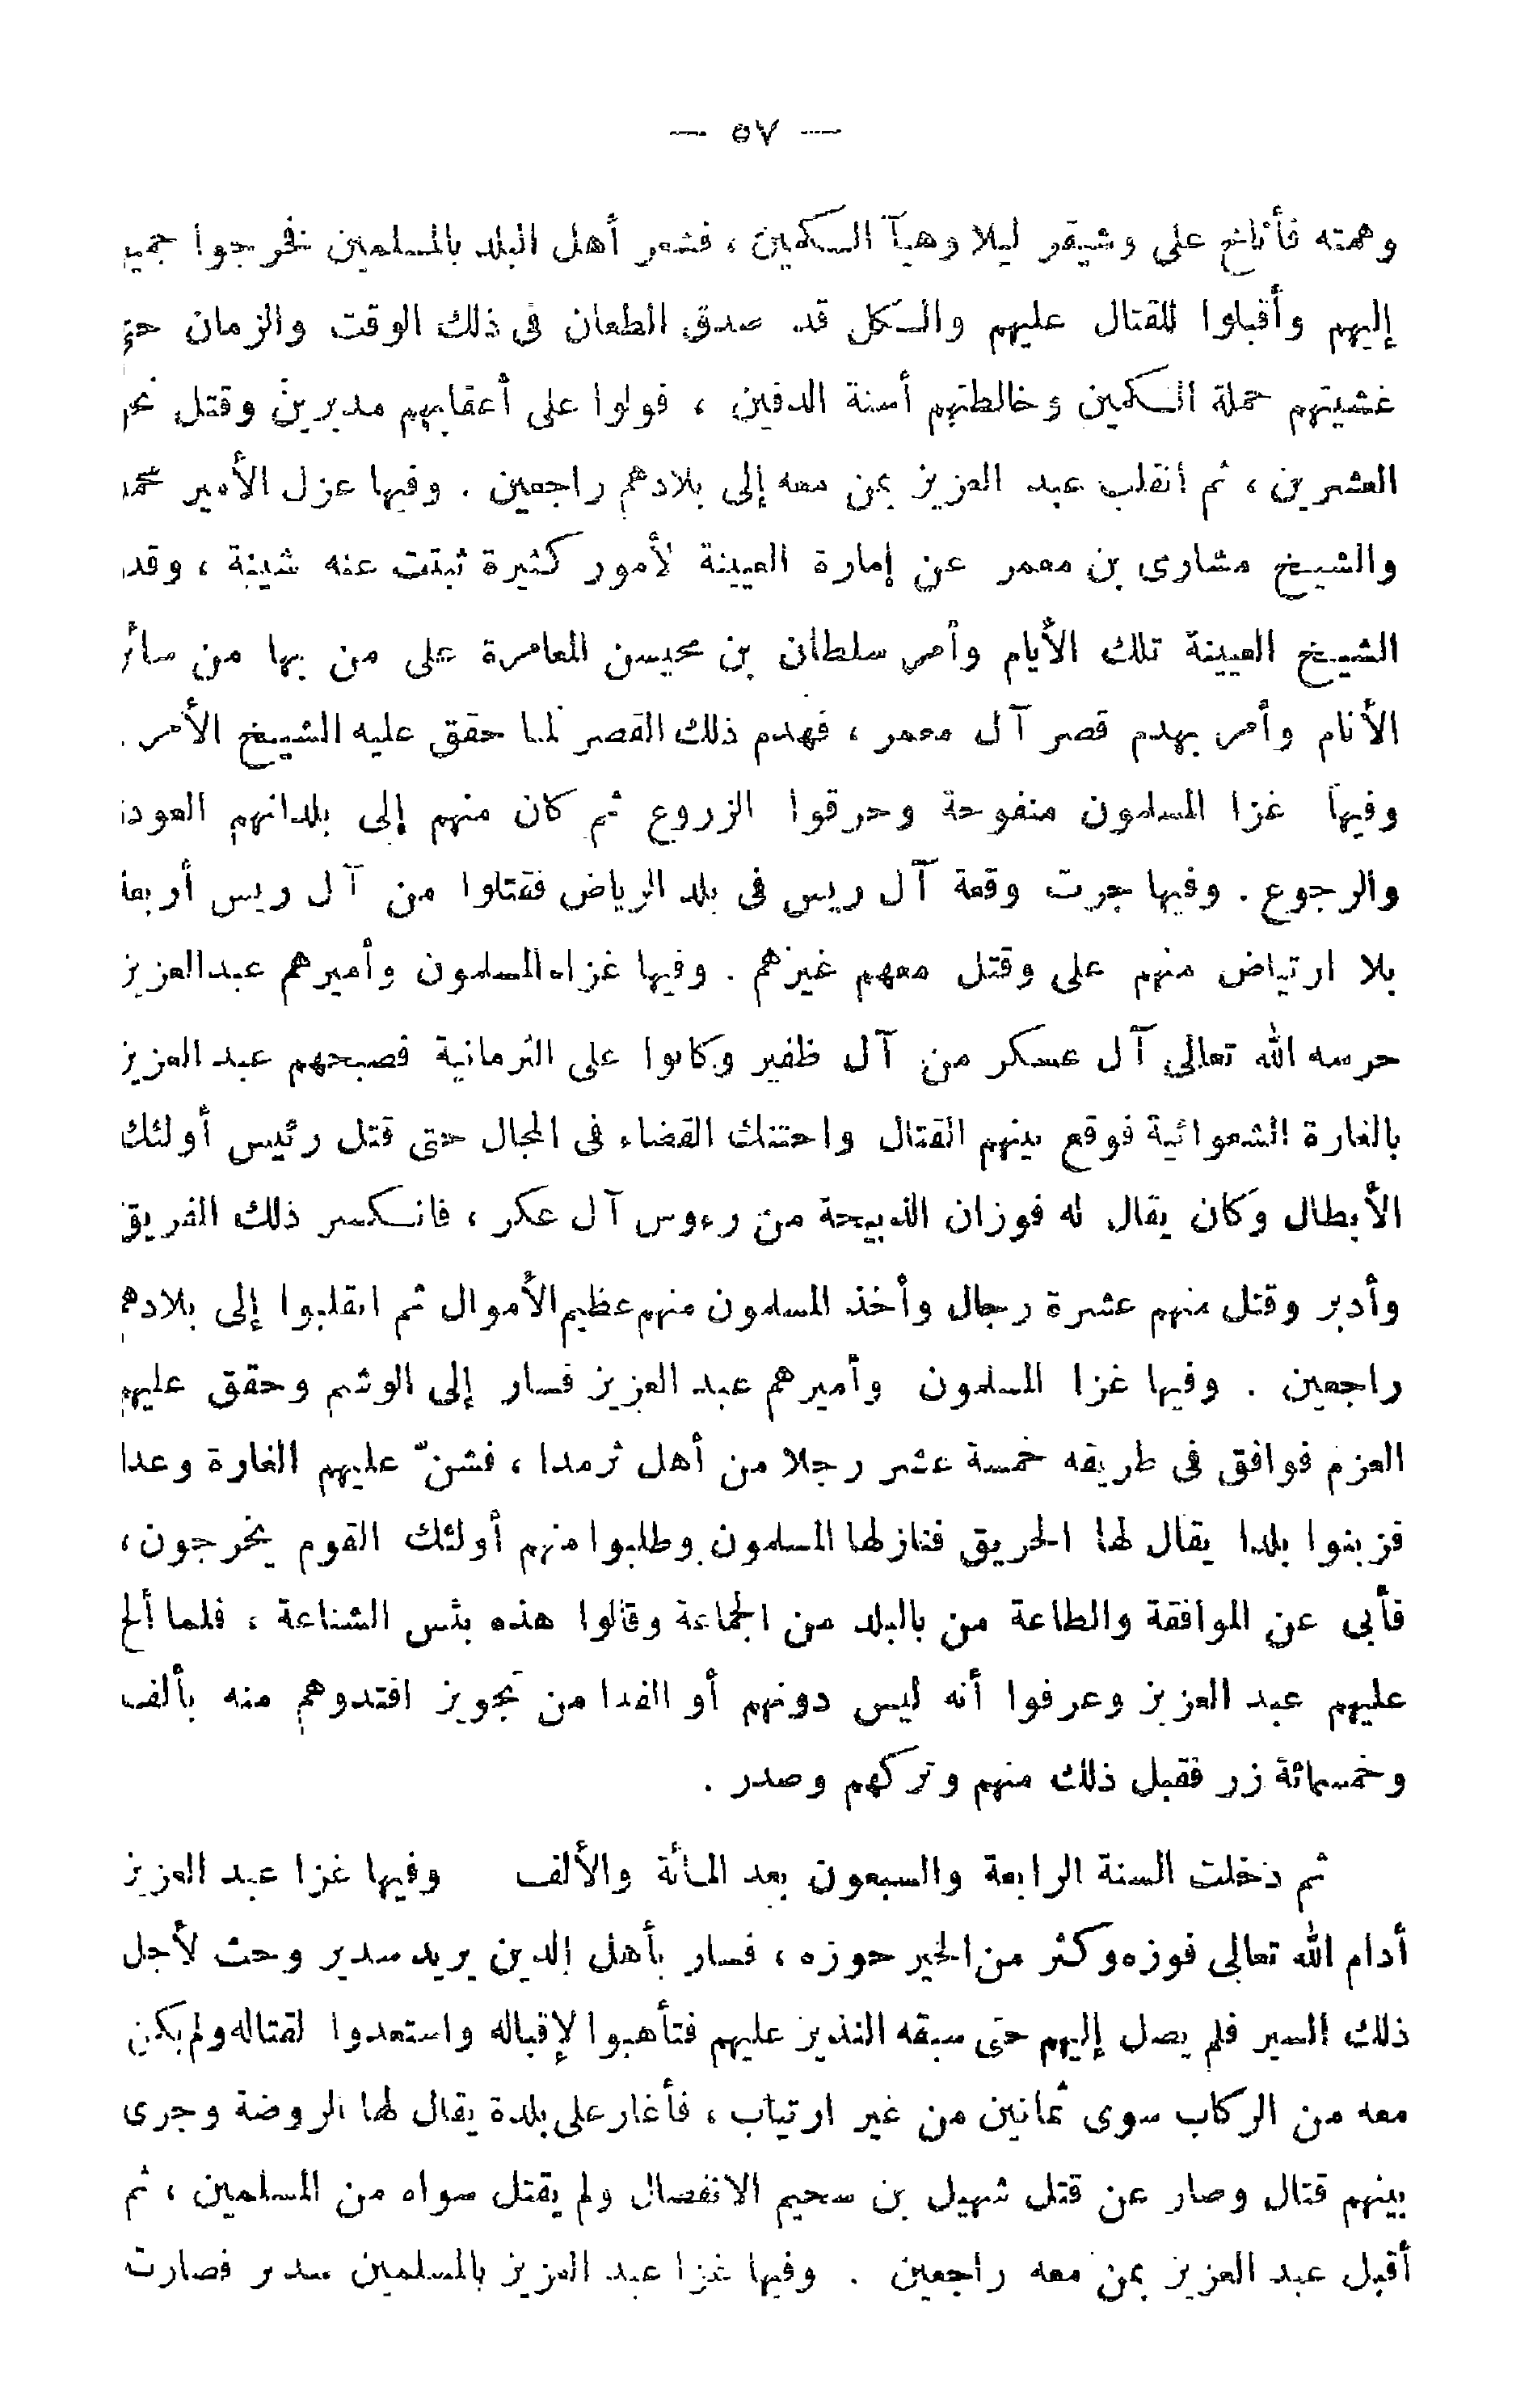 — ٥٧ —
وهمته فأناخ على وشيقر ليلا وهيأ الكمين ، فشعر أهل البلد بالمسلمين فخرجوا
إليهم وأقبلوا للقتال عليهم والكل قد صدق الطعان فى ذلك الوقت والزمان
غشيتهم حملة الكمين وخالطتهم أسنة الدفين ، فولوا على أعقابهم مدبرين وقتل
العشرين ، ثم انقلب عبد العزيز بمن معه إلى بلادهم راجعين . وفيها عزل الأمير
والشيخ مشارى بن معمر عن إمارة العيينة لأمور كثيرة ثبتت عنه شينة ، وقد
الشيخ العيينة تلك الأيام وأمر سلطان بن محيسن المعامرة على من بها من سائر
الأنام وأمر بهدم قصر آل معمر ، فهدم ذلك القصر لما حقق عليه الشيخ الأمر .
وفيها غزا المسلمون منفوحة وحرقوا الزروع ثم كان منهم إلى بلدانهم العودة
والرجوع . وفيها جرت وقعة آل ريس فى بلد الرياض فقتلوا من آل ريس أربعة
بلا ارتياض منهم على وقتل معهم غيرهم . وفيها غزاه المسلمون وأميرهم عبدالعزيز
حرسه الله تعالى آل عسكر من آل ظفير وكانوا على الثرمانية فصبحهم عبد العزيز
بالغارة الشعوائية فوقع بينهم القتال واحتنك القضاء فى المجال حتى قتل رئيس أولئك
الأبطال وكان يقال له فوزان الذبيحة من رءوس آل عكر ، فانكسر ذلك الفريق
وأدبر وقتل منهم عشرة رجال وأخذ المسلمون منهم عظيم الأموال ثم انقلبوا إلى بلادهم
راجعين . وفيها غزا المسلمون وأميرهم عبد العزيز فسار إلى الوشم وحقق عليهم
العزم فوافق فى طريقه خمسة عشر رجلا من أهل ثرمدا ، فشنّ عليهم الغارة وعدا
فزبنوا بلدا يقال لها الحريق فنازلها المسلمون وطلبوا منهم أولئك القوم يخرجون ،
فأبى عن الموافقة والطاعة من بالبلد من الجماعة وقالوا هذه بئس الشناعة ، فلما ألح
عليهم عبد العزيز وعرفوا أنه ليس دونهم أو الفدا من تجويز افتدوهم منه بألف
وخمسمائة زر فقبل ذلك منهم وتركهم وصدر .
ثم دخلت السنة الرابعة والسبعون بعد المائة والألف وفيها غزا عبد العزيز
أدام الله تعالى فوزه وكثر من الخير حوزه ، فسار بأهل الدين يريد سدير وحث لأجل
ذلك السير فلم يصل إليهم حتى سبقه النذير عليهم فتأهبوا لإقباله واستعدوا لقتاله ولم يكن
معه من الركاب سوى ثمانين من غير ارتياب ، فأغار على بلدة يقال لها الروضة وجرى
بينهم قتال وصار عن قتل شهيل بن سحيم الانفصال ولم يقتل سواه من المسلمين ، ثم
أقبل عبد العزيز بمن معه راجعين . وفيها غزا عبد العزيز بالمسلمين سدير فصارت